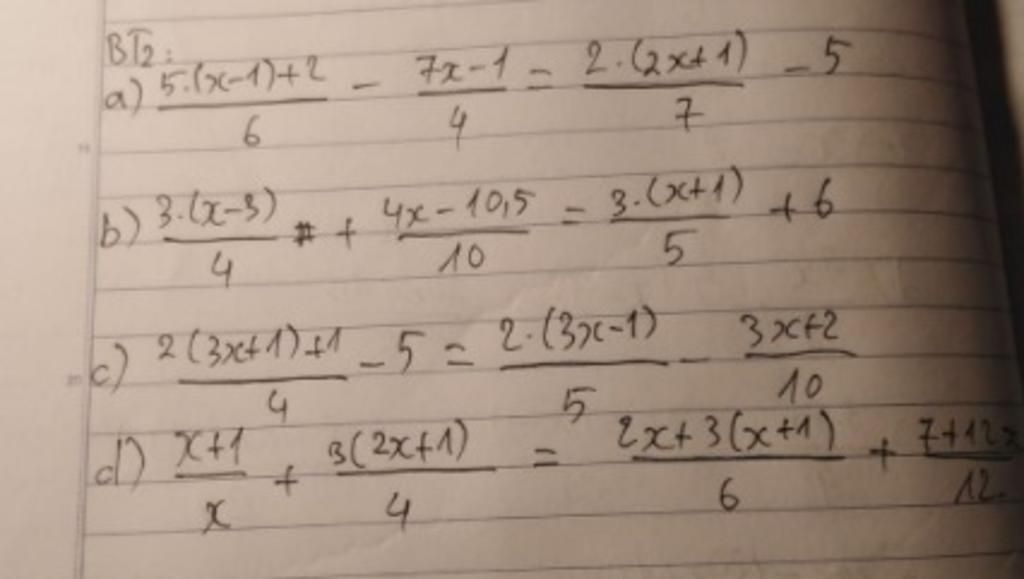 BT2:
a) \frac{5.(x-1)+2}{6} - \frac{7x-1}{4} = \frac{2.(2x+1)}{7} - 5
b) \frac{3.(x-3)}{4} + \frac{4x-10,5}{10} = \frac{3.(x+1)}{5} + 6
c) \frac{2(3x+1)+1}{4} - 5 = \frac{2.(3x-1)}{5} - \frac{3x+2}{10}
d) \frac{x+1}{x} + \frac{3(2x+1)}{4} = \frac{2x+3(x+1)}{6} + \frac{7+12x}{12}